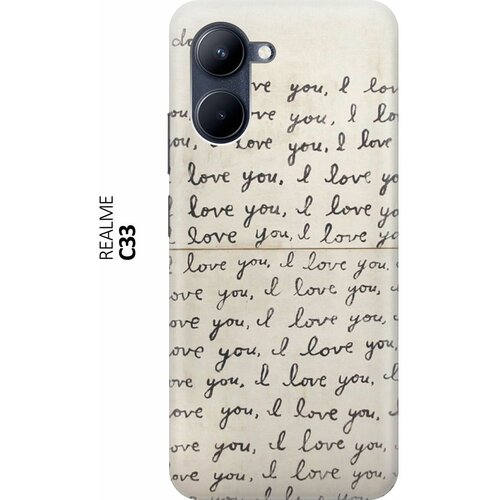 REALME
C33
do
ve you, I lov
ou, ve you, I lo
ou, I love you, I love
love you, I love yo
I love you, I love yo
I love you, I love yo
I love you, I love you,
love you, I love you,
ove you, I love you,
ove you, I love you,
ove you, I love you, I
ove you, I love you, I
ove you, I love you,
ove you, I love you,